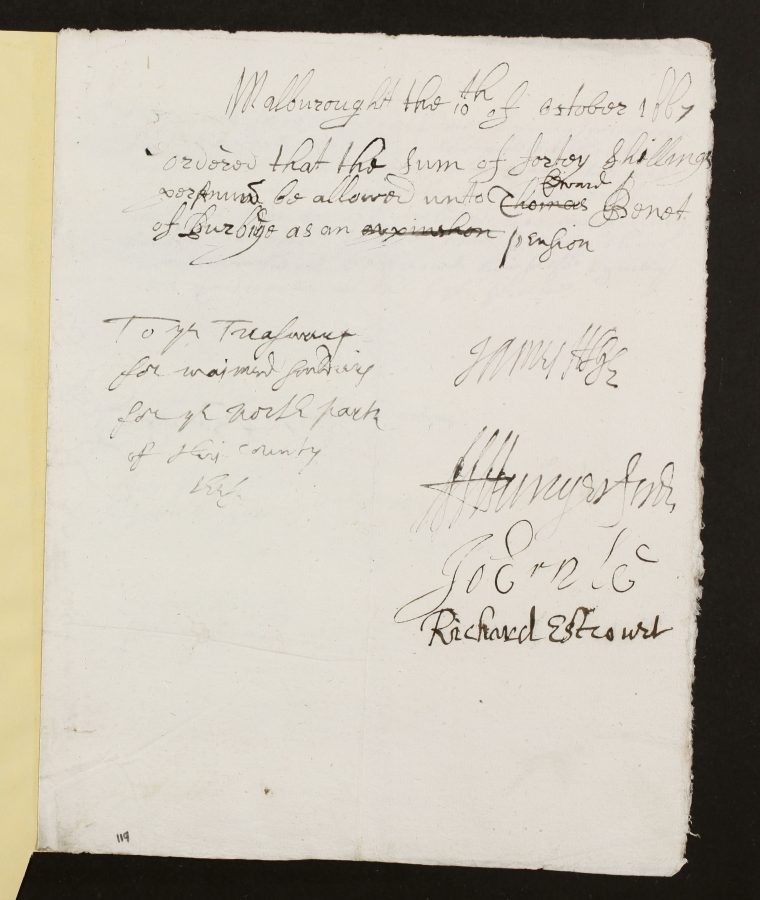 Malburought the 10th of october 1667
ordered that the sum of fortey shillings
per Annum be allowed unto Thomas Edward Benet
of Burbidge as an pension
To ye Treasurer
for maimed souldiers
for ye North parte
of this County
James
Hungerford
Jo Ernle
Richard Estcourt
119